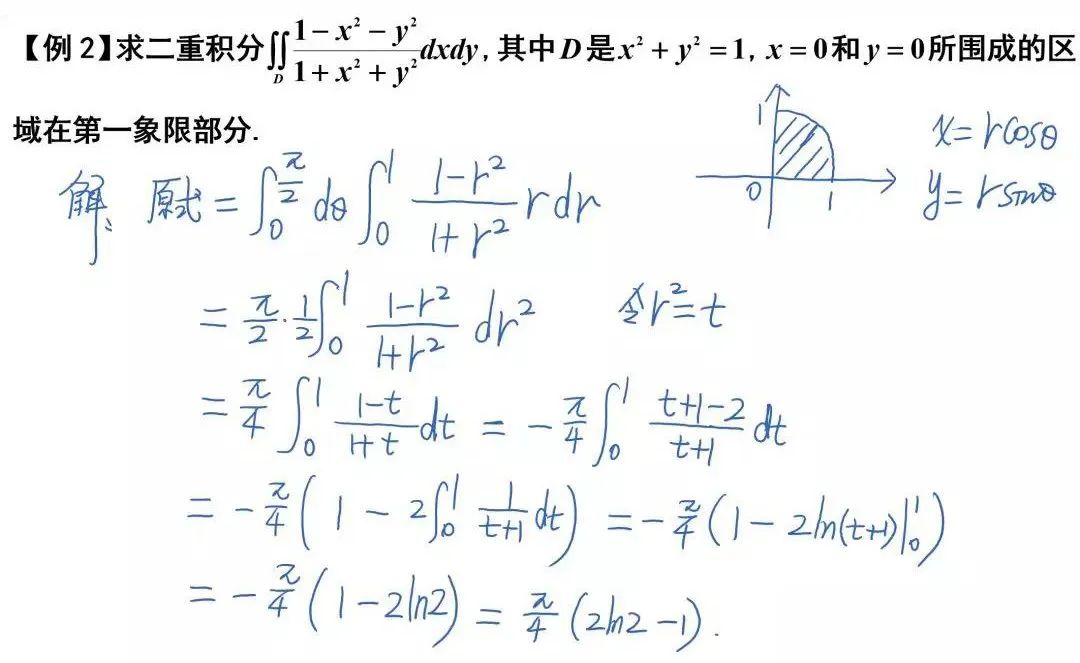 【例2】求二重积分∬_D (1-x²-y²)/(1+x²+y²) dxdy, 其中D是x²+y²=1, x=0和y=0所围成的区
域在第一象限部分.
1
0
1
x=rcosθ
y=rsinθ
解: 原式=∫₀^(π/2) dθ ∫₀¹ (1-r²)/(1+r²) r dr
= π/2·1/2 ∫₀¹ (1-r²)/(1+r²) dr² 令r²=t
= π/4 ∫₀¹ (1-t)/(1+t) dt = -π/4 ∫₀¹ (t+1-2)/(t+1) dt
= -π/4 (1 - 2∫₀¹ 1/(t+1) dt) = -π/4 (1-2ln(t+1)|₀¹)
= -π/4 (1-2ln2) = π/4 (2ln2-1).